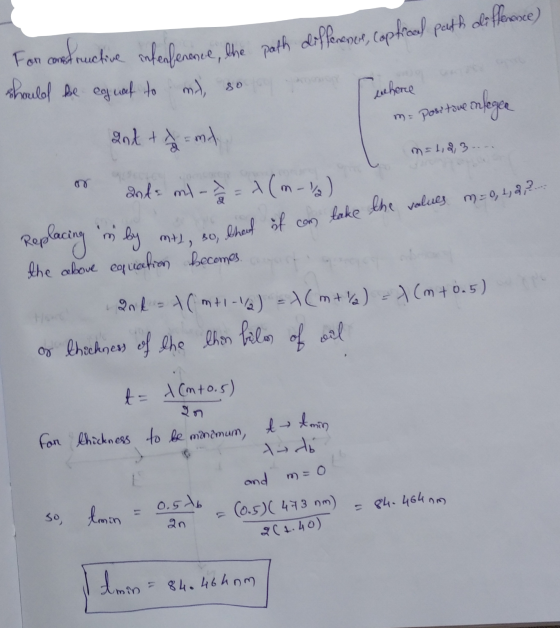 For constructive interference, the path difference, (optical path difference)
should be equal to mλ, so
where
m = positive integer
m = 1, 2, 3 ....
2nt + λ/2 = mλ
or 2nt = mλ - λ/2 = λ(m - 1/2)
Replacing 'm' by m+1, so, that it can take the values m = 0, 1, 2, 3...
the above equation becomes
2nt = λ(m+1-1/2) = λ(m+1/2) = λ(m+0.5)
or thickness of the thin film of oil
t = λ(m+0.5)/2n
For thickness to be minimum, t → tmin
λ → λb
and m = 0
so, tmin = 0.5λb/2n = (0.5)(473 nm)/2(1.40) = 84.464 nm
tmin = 84.464 nm